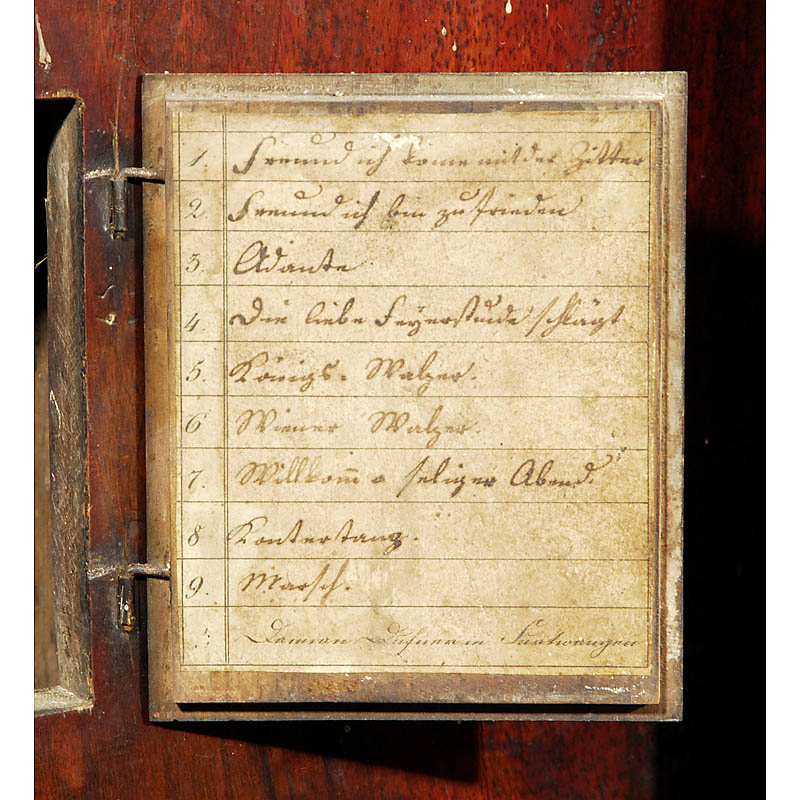 1. Freund ich kome mit der Zitter
2 Freund ich bin zufrieden
3. Adante
4. Die liebe Feyerstunde schlägt
5. Königs. Walzer.
6 Wiener Walzer.
7. Willkom̄ o seliger Abend.
8 Kontertanz.
9. Marsch.
Damian Dufner in Furtwangen